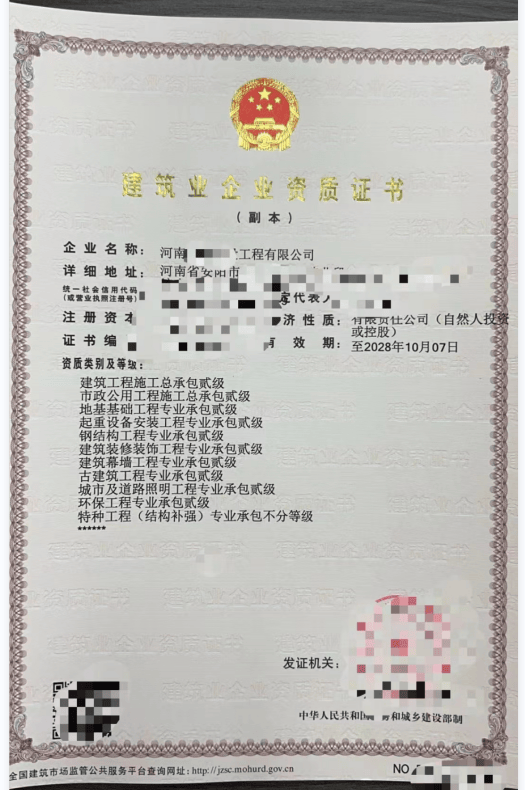 建筑业企业资质证书
（副本）
企业名称：河南 工程有限公司
详细地址：河南省安阳市
统一社会信用代码
（或营业执照注册号）：
定代表人
注册资本
济性质：有限责任公司（自然人投资
或控股）
证书编
有效期：至2028年10月07日
资质类别及等级：
建筑工程施工总承包贰级
市政公用工程施工总承包贰级
地基基础工程专业承包贰级
起重设备安装工程专业承包贰级
钢结构工程专业承包贰级
建筑装修装饰工程专业承包贰级
建筑幕墙工程专业承包贰级
古建筑工程专业承包贰级
城市及道路照明工程专业承包贰级
环保工程专业承包贰级
特种工程（结构补强）专业承包不分等级
******
发证机关：
中华人民共和国 房和城乡建设部制
全国建筑市场监管公共服务平台查询网址：http://jzsc.mohurd.gov.cn
NO